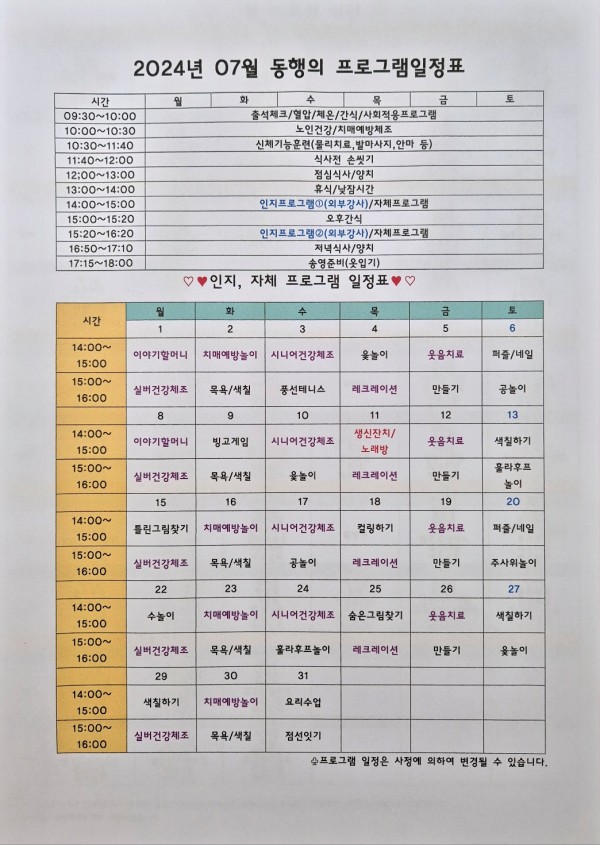 2024년 07월 동행의 프로그램일정표
시간 월 화 수 목 금 토
09:30~10:00 출석체크/혈압/체온/간식/사회적응프로그램
10:00~10:30 노인건강/치매예방체조
10:30~11:40 신체기능훈련(물리치료,발마사지,안마 등)
11:40~12:00 식사전 손씻기
12;00~13:00 점심식사/양치
13:00~14:00 휴식/낮잠시간
14:00~15:00 인지프로그램①(외부강사)/자체프로그램
15:00~15:20 오후간식
15:20~16:20 인지프로그램②(외부강사)/자체프로그램
16:50~17:10 저녁식사/양치
17:15~18:00 송영준비(옷입기)
♡♥인지, 자체 프로그램 일정표♥♡
시간 월 화 수 목 금 토
1 2 3 4 5 6
14:00~
15:00
이야기할머니 치매예방놀이 시니어건강체조 윷놀이 웃음치료 퍼즐/네일
15:00~
16:00
실버건강체조 목욕/색칠 풍선테니스 레크레이션 만들기 공놀이
8 9 10 11 12 13
14:00~
15:00
이야기할머니 빙고게임 시니어건강체조 생신잔치/
노래방
웃음치료 색칠하기
15:00~
16:00
실버건강체조 목욕/색칠 윷놀이 레크레이션 만들기 훌라후프
놀이
15 16 17 18 19 20
14:00~
15:00
틀린그림찾기 치매예방놀이 시니어건강체조 컬링하기 웃음치료 퍼즐/네일
15:00~
16:00
실버건강체조 목욕/색칠 공놀이 레크레이션 만들기 주사위놀이
22 23 24 25 26 27
14:00~
15:00
수놀이 치매예방놀이 시니어건강체조 숨은그림찾기 웃음치료 색칠하기
15:00~
16:00
실버건강체조 목욕/색칠 훌라후프놀이 레크레이션 만들기 윷놀이
29 30 31
14:00~
15:00
색칠하기 치매예방놀이 요리수업
15:00~
16:00
실버건강체조 목욕/색칠 점선잇기
♧프로그램 일정은 사정에 의하여 변경될 수 있습니다.